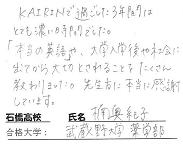 KAIRINで過ごした3年間は
とても濃い時間でした。
「本当の英語」や、大学入学後や社会に
出てから大切とされることをたくさん
教わりました。先生方に本当に感謝
しています。
石橋高校 氏名 楠奥紀子
合格大学： 武蔵野大学 薬学部